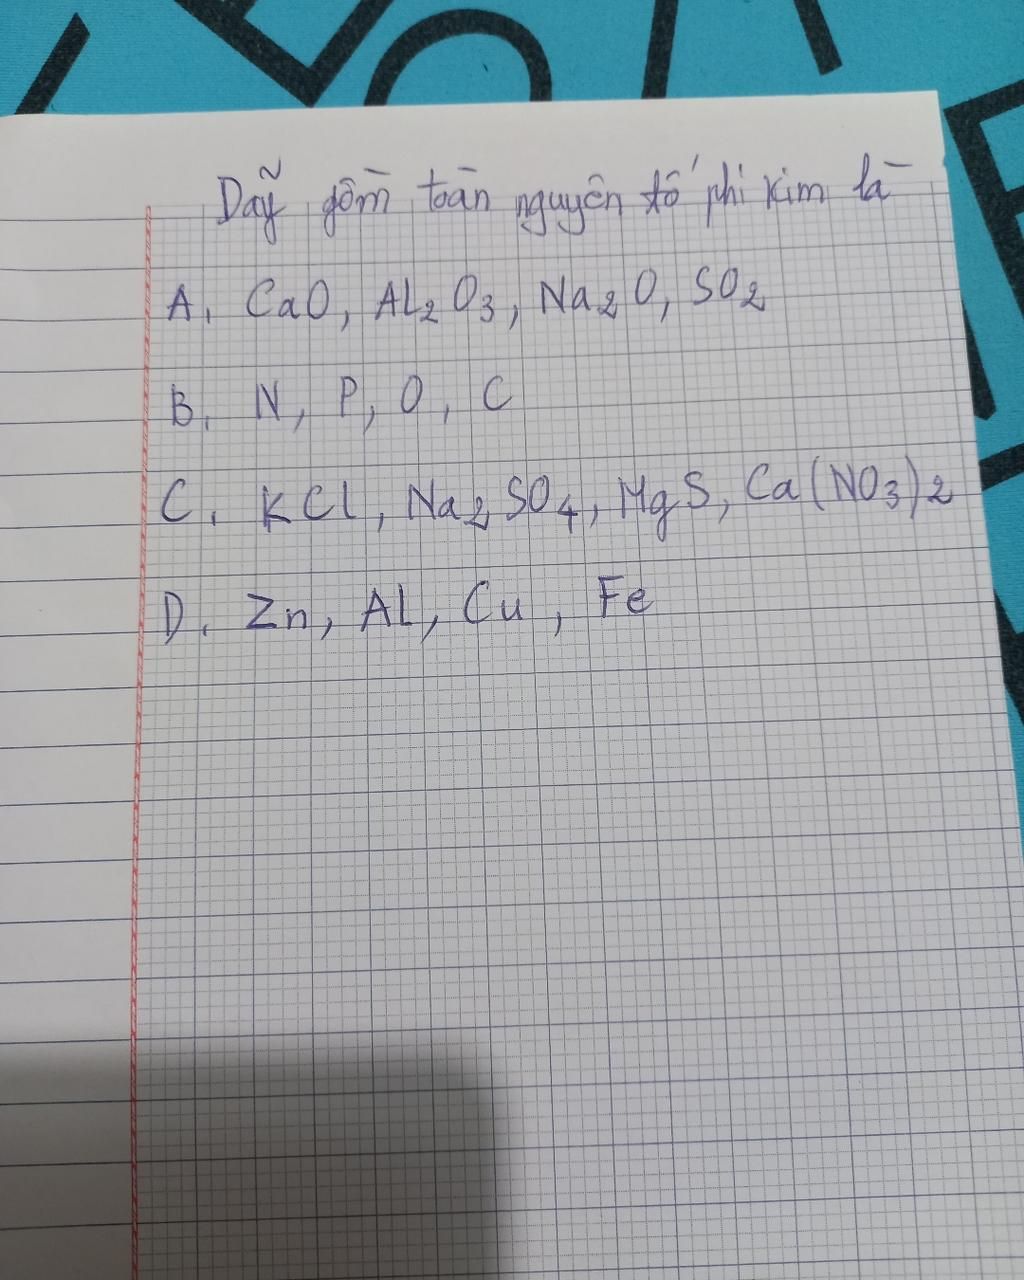 Dãy gồm toàn nguyên tố phi kim là
A, CaO, Al2O3, Na2O, SO2
B, N, P, O, C
C, KCl, Na2SO4, MgS, Ca(NO3)2
D, Zn, Al, Cu, Fe